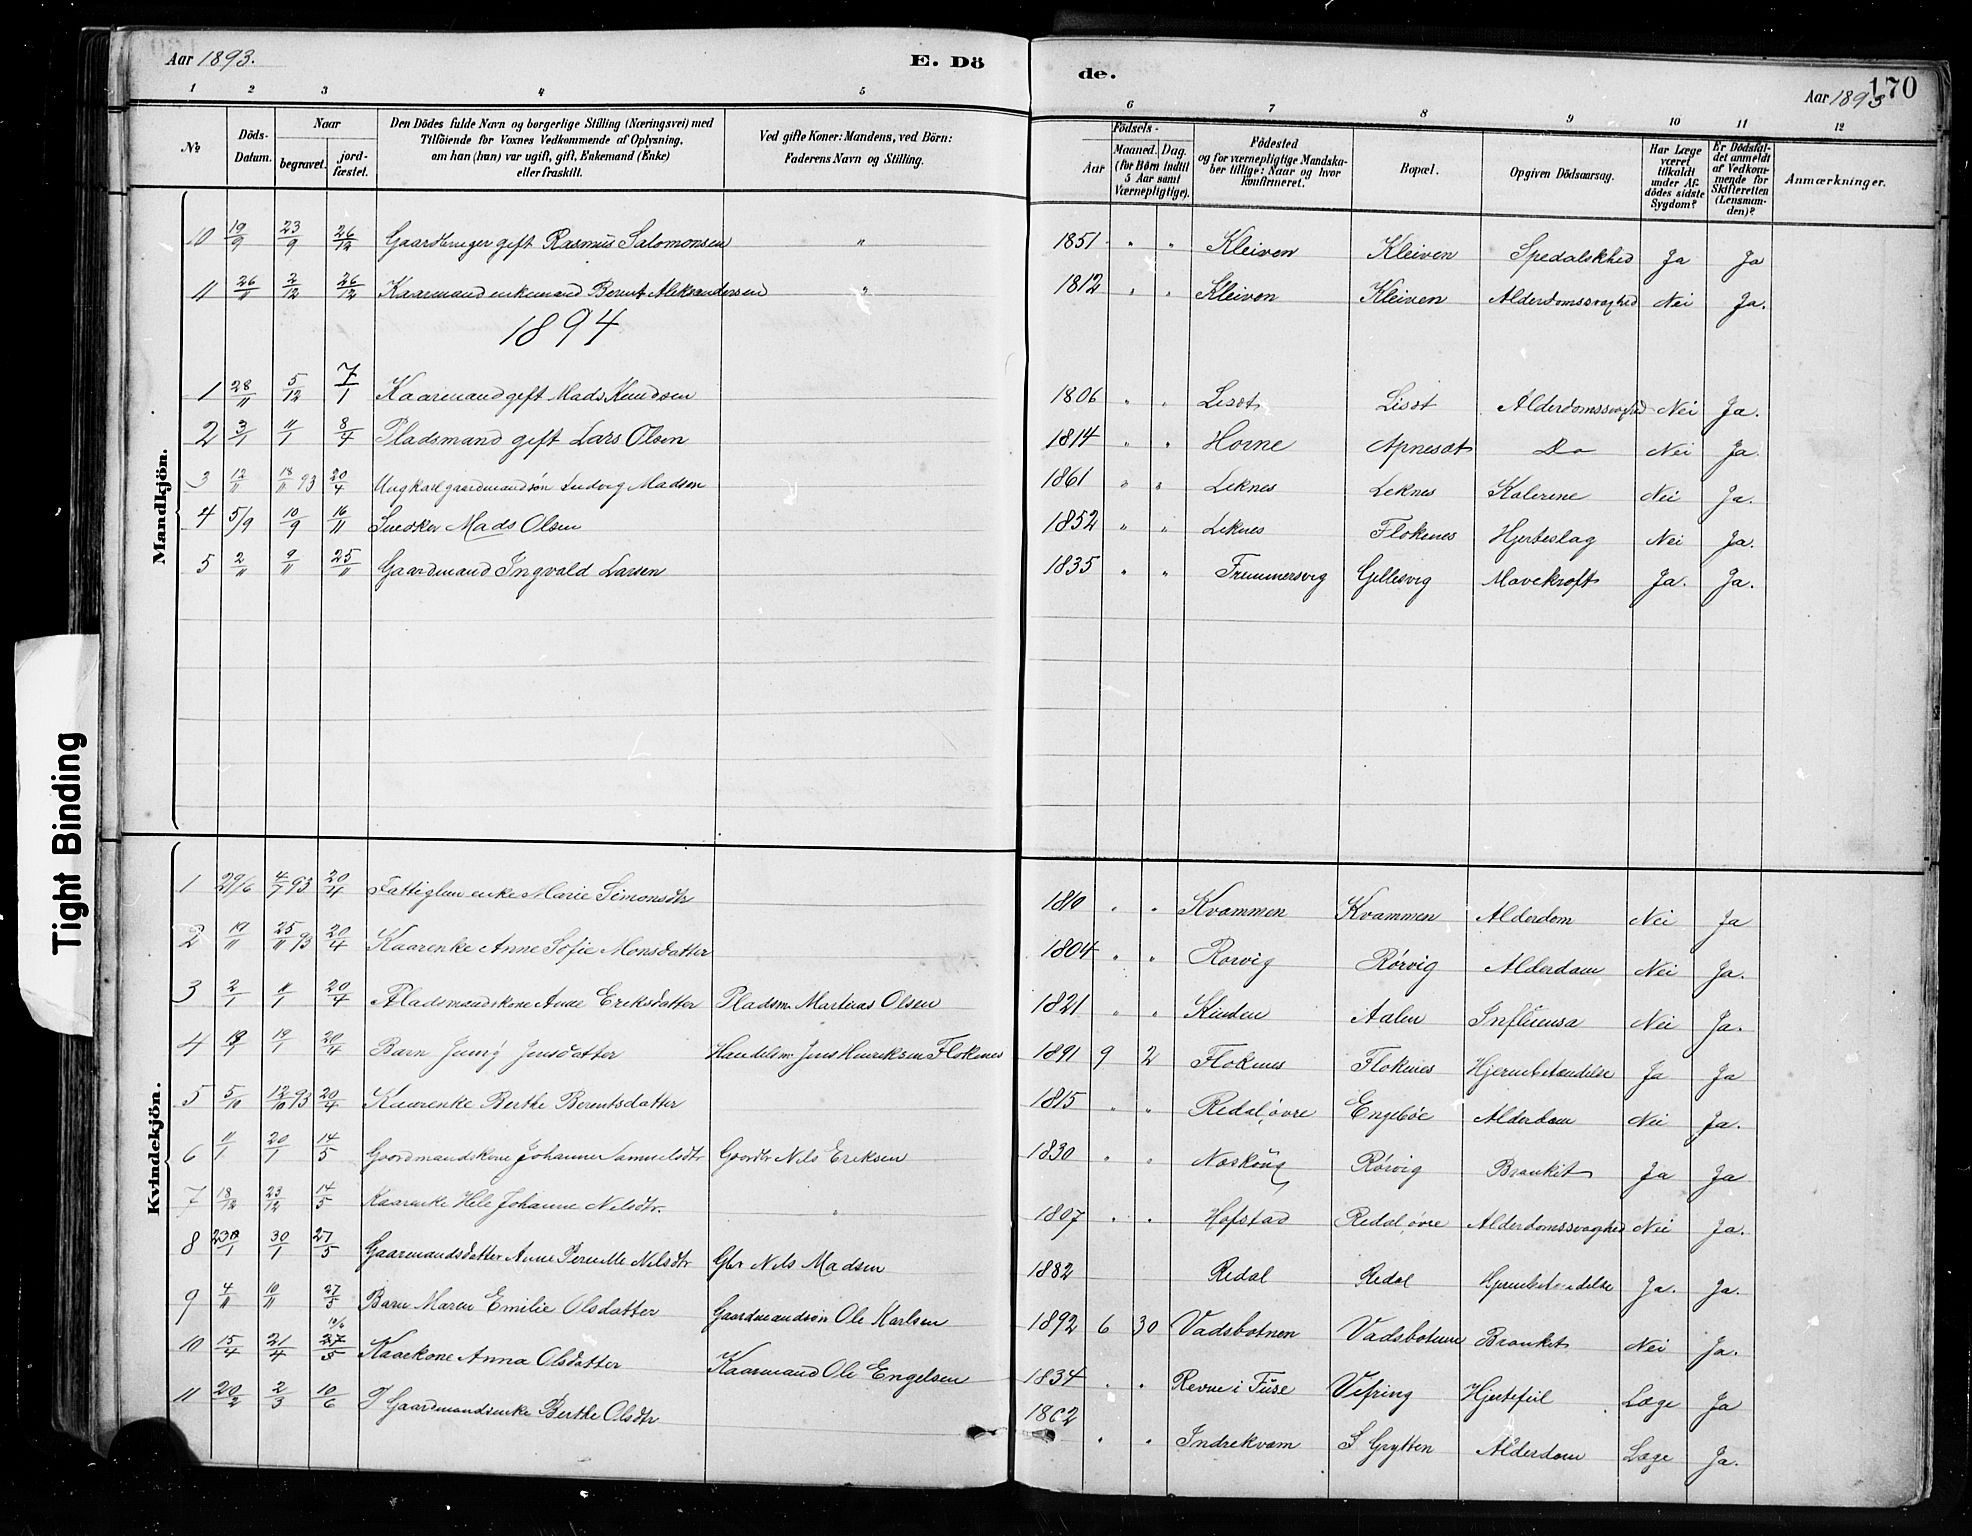 Aar 1893.
E. Dö
de.
Aar 1893
170
1 2 3 4 5 6 7 8 9 10 11 12
№
Döds-Datum.
Naar
begravet.
jord-fæstet.
Den Dödes fulde Navn og borgerlige Stilling (Næringsvei) med
Tilföiende for Voxnes Vedkommende af Oplysning,
om han (hun) var ugift, gift, Enkemand (Enke)
eller fraskilt.
Ved gifte Koner: Mandens, ved Börn:
Faderens Navn og Stilling.
Födsels-
Aar
Maaned. Dag.
(for Börn indtil
5 Aar samt
Værnepligtige).
Födested
og for værnepligtige Mandska-
ber tillige: Naar og hvor
konfirmeret.
Bopæl.
Opgiven Dödsaarsag.
Har Læge
været
tilkaldt
under Af-
dödes sidste
Sygdom?
Er Dödsfal-
det anmeldt
af Vedkom-
mende for
Skifteretten
(Lensman-
den)?
Anmærkninger.
Mandkjön.
10 19/9 23/9 26/12 Gaardbruger gift Rasmus Salomonsen " 1851 " " Kleiven Kleiven Spedalskhed Ja Ja
11 26/11 2/12 26/12 Kaarmand enkemand Berent Aleksandersen " 1812 " " Kleiven Kleiven Alderdomssvaghed Nei Ja.
1894
1 28/11 5/12 7/1 Kaarmand gift Mads Knudsen 1806 " " Lisæt Lisæt Alderdomssvaghed Nei Ja.
2 3/1 11/1 8/4 Pladsmand gift Lars Olsen 1814 " " Horne Apnesæt Do Nei Ja.
3 12/11 18/11 93 20/4 Ungkarl gaardmandsøn Ludvig Madsen 1861 " " Leknes Leknes Kolerine Nei Ja.
4 5/9 10/9 16/11 Snedker Mads Olsen 1852 " " Leknes Flokenes Hjerteslag Nei Ja.
5 2/11 9/11 25/11 Gaardmand Ingvald Larsen 1835 " " Frummersvig Gjellesvig Mavekræft Ja. Ja.
Kvindekjön.
1 29/6 4/7 93 20/4 Fattiglem enke Marie Simonsdtr 1810 " " Kvammen Kvammen Alderdom Nei Ja
2 19/11 25/11 93 20/4 Kaarenke Anne Sofie Monsdatter 1804 " " Rørvig Rørvig Alderdom Nei Ja.
3 2/1 11/1 20/4 Pladsmandskone Anne Eriksdatter Pladsm. Martinus Olsen 1821 " " Kinden Aalen Influensa Nei Ja.
4 19/1 20/4 Barn Jensdatter Handelsm. Jens Henriksen Flokenes 1891 9 2 Flokenes Flokenes Hjernebetændelse Ja Ja
5 5/10 12/10 93 20/4 Kaarenke Berthe Berentsdatter 1815 " " Redal, øvre Engebøe Alderdom Nei Ja.
6 11/1 20/1 14/5 Gaardmandskone Johanne Samuelsdtr Gaardbr Nils Eriksen 1830 " " Naskoug Rørvig Bronkit Ja Ja
7 18/12 23/12 14/5 Kaarenke Hele Johanne Nilsdtr. " 1807 " " Hofstad Redal, øvre Alderdomssvaghed Nei Ja.
8 30/1 27/5 Gaarmandsdatter Anne Pernille Nilsdtr Gbr Nils Madsen 1882 Redal Redal Hjernebetændelse Ja. Ja.
9 4/11 10/11 27/5 Barn Maren Emilie Olsdatter Gaardmandsøn Ole Karlsen 1892 6 30 Vadsbotnen Vadsbotnen Bronkit Nei Ja.
10 15/4 21/4 27/5 10/6 Kaarkone Anna Olsdatter Kaarmand Ole Engelsen 1834 " " Revne i Fuse Vefring Hjertefeil Læge Ja
11 20/2 2/3 10/6 Gaardmandsenke Berthe Olsdtr 1802 " " Indrekvam S. Grytten Alderdom Læge Ja.
Tight Binding